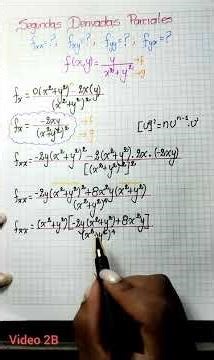 Segundas Derivadas Parciales
fxx=?, fxy=?, fyy=?, fyx=?
f(x,y)= y/(x²+y²) →f →g
fx= (0(x²+y²)-2x(y))/(x²+y²)²
fx= -2xy/(x²+y²)² →f →g
[U]ⁿ=nUⁿ⁻¹.U'
fxx= (-2y(x²+y²)²-2(x²+y²).2x.(-2xy))/[(x²+y²)²]²
fxx= (-2y(x²+y²)²+8x²y(x²+y²))/(x²+y²)⁴
fxx= (x²+y²)[-2y(x²+y²)+8x²y]/(x²+y²)⁴
Video 2B